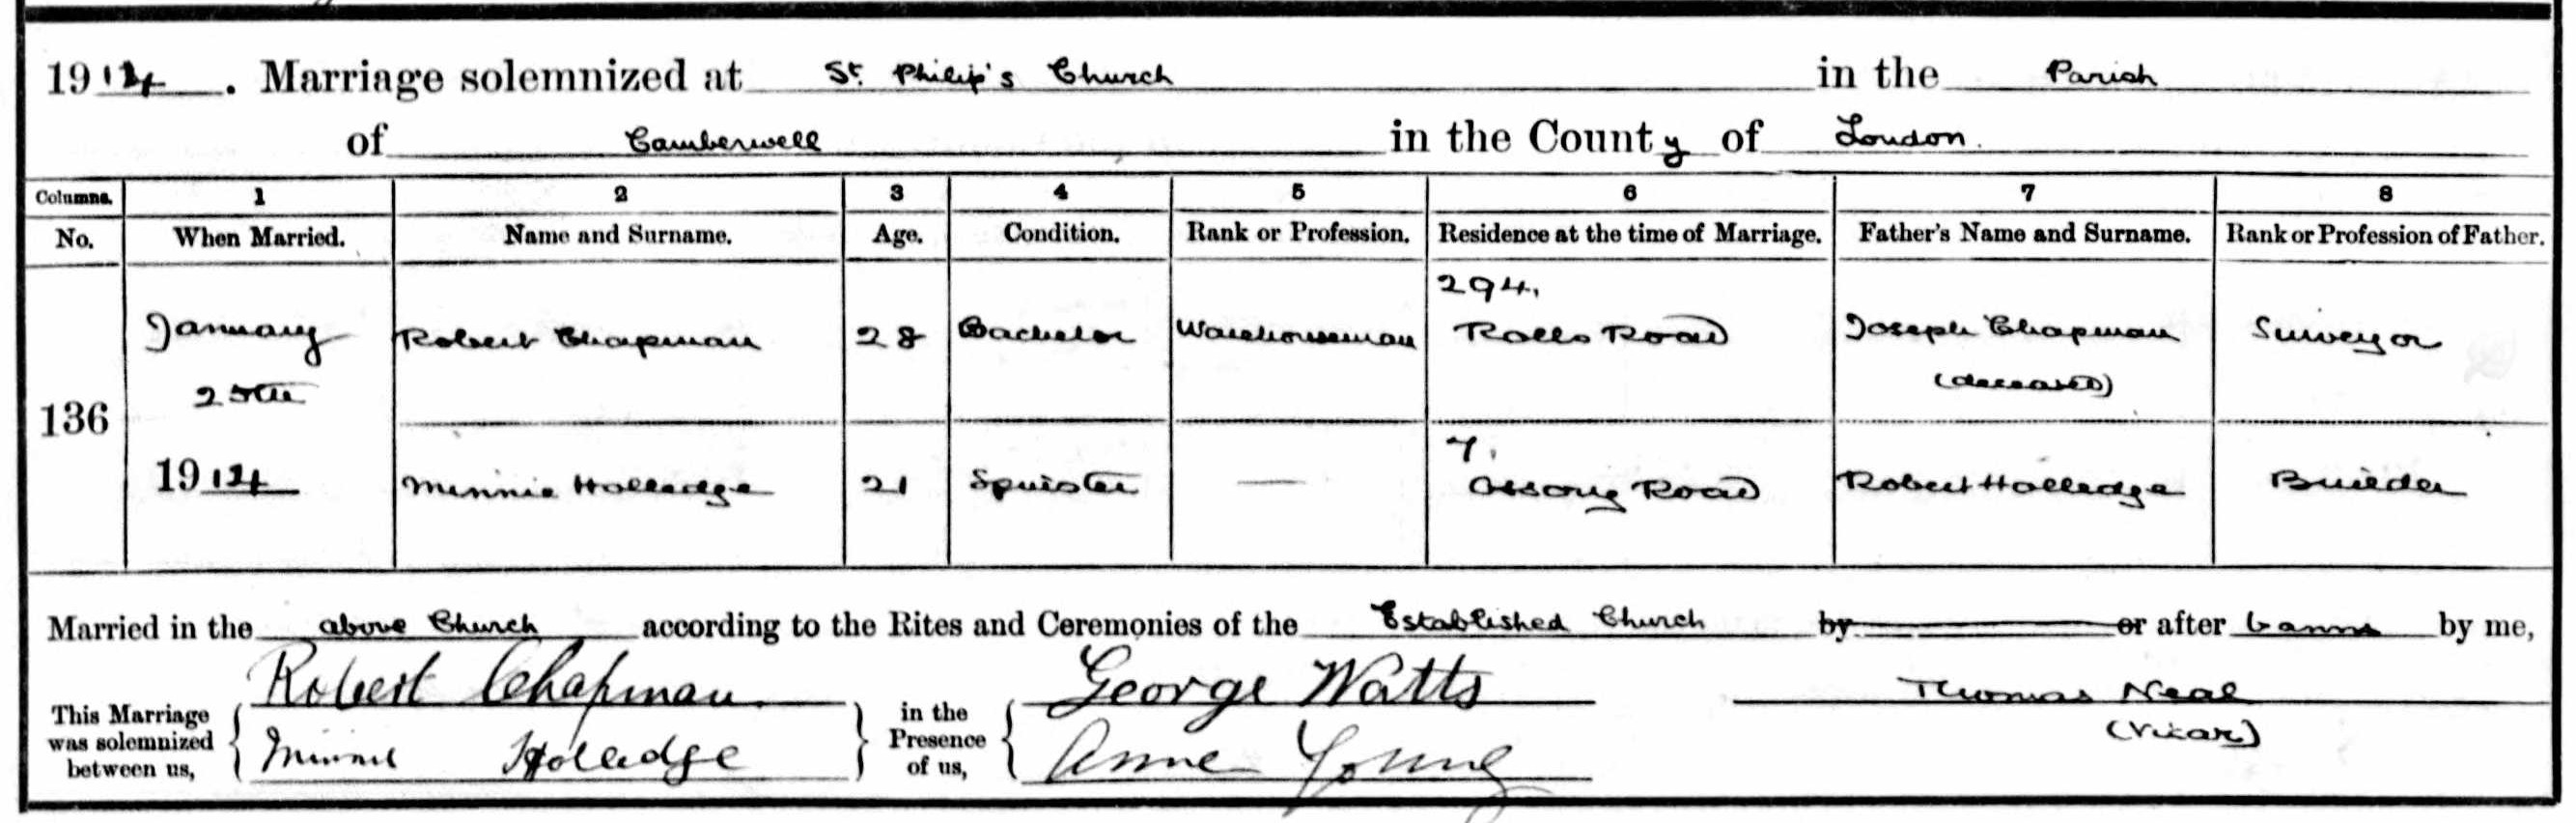 1914. Marriage solemnized at St. Philip's Church in the Parish
of Camberwell in the County of London.
Columns. 1 2 3 4 5 6 7 8
No. When Married. Name and Surname. Age. Condition. Rank or Profession. Residence at the time of Marriage. Father's Name and Surname. Rank or Profession of Father.
136
January
25th
1914
Robert Chapman 28 Bachelor Warehouseman 294, Rolls Road Joseph Chapman (deceased) Surveyor
Minnie Holledge 21 Spinster — 7, Ossory Road Robert Holledge Builder
Married in the above Church according to the Rites and Ceremonies of the Established Church by or after banns by me,
This Marriage was solemnized between us,
Robert Chapman.
Minnie Holledge
in the Presence of us,
George Watts
Anne Young
Thomas Neal
(Vicar)